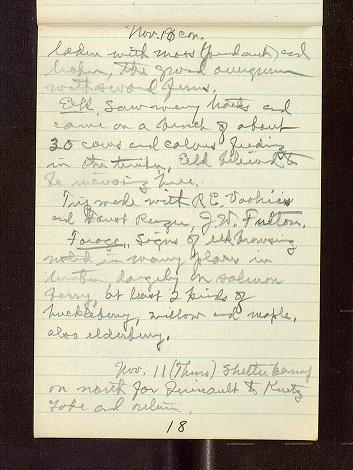 Nov. 10 con.
laden with moss (pendant) and
lichen, the ground overgrown
with sword ferns.
Elk. Saw many tracks and
came on a bunch of about
30 cows and calves feeding
in the timber. Elk
to increasing here.
Trip made with R.E. Voorhies
and Forest Ranger, J.W. Fulton.
Forage. Signs of elk browsing
noted in many places in
timber largely on salmon
berry, at least 2 kinds of
huckleberry, willow and maple,
also elderberry.
Nov. 11 (Thurs) Shelter Camp
on north fork Quinault to
and return.
18